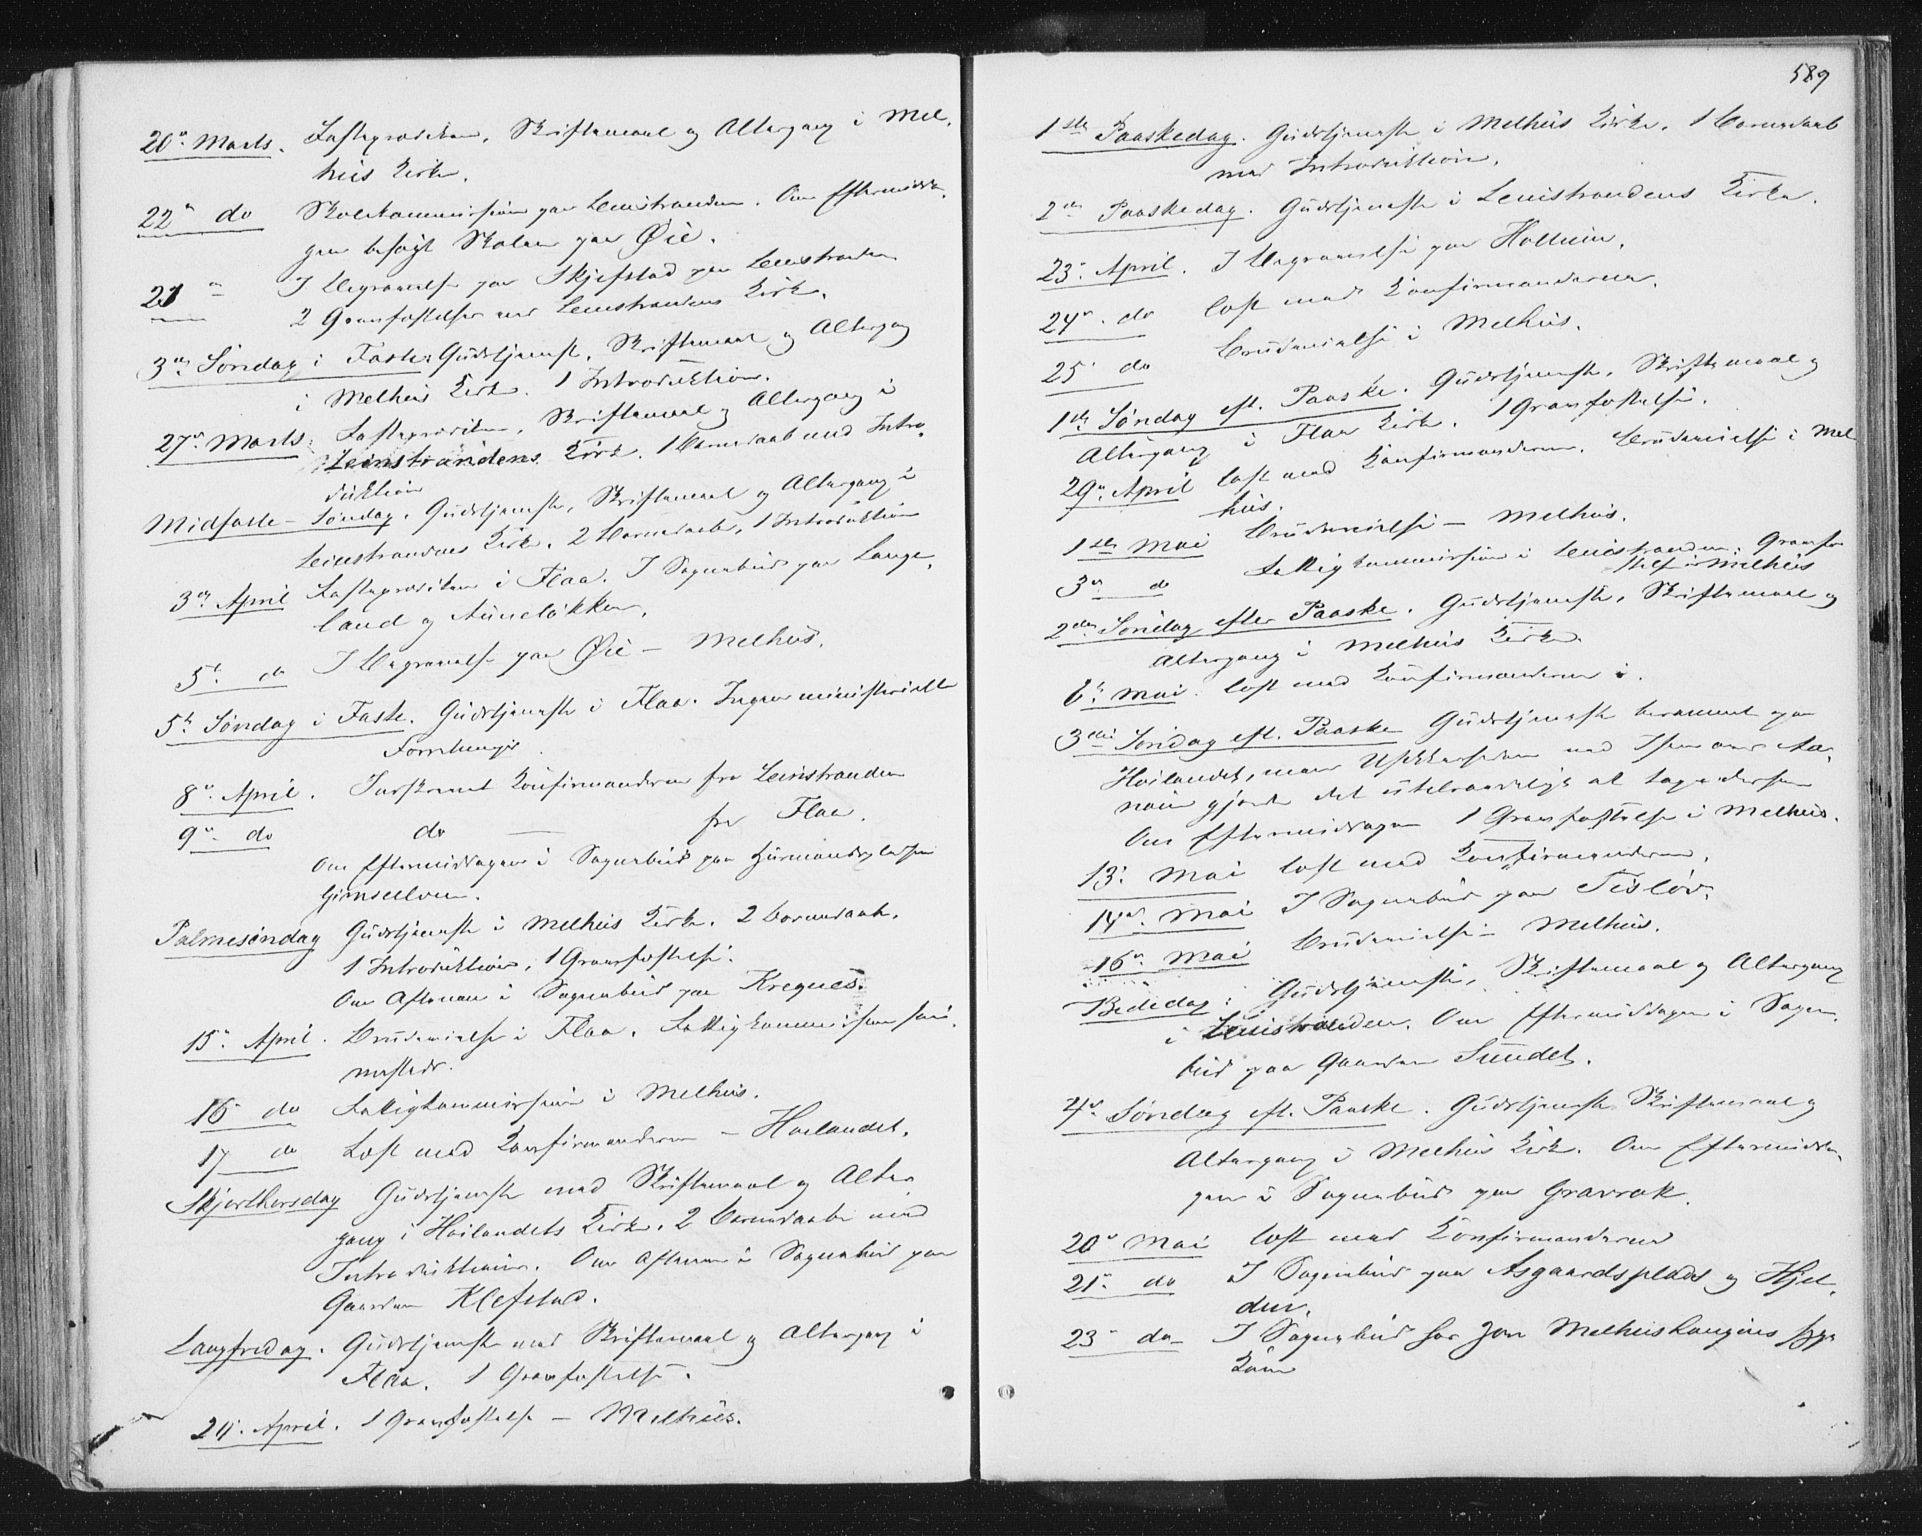 20de Marts. Fasteprædiken, Skriftemaal og Altergang i Mel-
huus Kirke.
22de do Skolekommission paa Leinstranden. Om Eftermidda-
gen besøgt Skolen paa Øie.
I Begravelse paa Skjefstad paa Leinstranden
2 Gravfæstelser ved Leinstrandens Kirke.
3die Søndag i Faste. Gudstjeneste, Skriftemaal og Altergang
i Melhuus Kirke. 1 Introduktion.
27de Marts. Fasteprædiken, Skriftemaal og Altergang i
Leinstrandens Kirke. 1 Barnedaab med Intro-
duktion
Midfaste-Søndag. Gudstjeneste, Skriftemaal og Altergang i
Leinstrandens Kirke. 2 Barnedaab, 1 Introduktion
3die April Fasteprædiken i Flaa. I Sognebud paa Lange-
land og Auneløkken.
5te do I Begravelse paa Øie – Melhuus.
5te Søndag i Faste. Gudstjeneste i Flaa. Ingen ministerielle
Forretninger.
8de April. Indskrevet Konfirmanderne fra Leinstranden
9de do do — fra Flaa.
Om Eftermiddagen i Sognebud paa Huusmandspladsen
Gimselven.
Palmesøndag Gudstjeneste i Melhuus Kirke. 2 Barnedaab.
1 Introduktion, 1 Gravfæstelse.
Om Aftenen i Sognebud paa Kregnes.
15de April. Brudevielse i Flaa. Fattigkommission sam-
mesteds.
16de do Fattigkommission i Melhuus.
17 do Læst med Konfirmanderne – Høilandet.
Skjærthorsdag Gudstjeneste med Skriftemaal og Alter-
gang i Høilandets Kirke. 2 Barnedaabe med
Introduktioner. Om Aftenen i Sognebud paa
Gaarden Klefstad.
Langfredag. Gudstjeneste med Skriftemaal og Altergang i
Flaa. 1 Gravfæstelse.
20. April. 1 Gravfæstelse – Melhuus.
589
1ste Paaskedag. Gudstjeneste i Melhuus Kirke. 1 Barnedaab
med Introduktion.
2den Paaskedag. Gudstjeneste i Leinstrandens Kirke.
23de April. I Begravelse paa Hollum.
24de do læst med Konfirmanderne.
25 do Brudevielse i Melhuus.
1ste Søndag eft. Paaske. Gudstjeneste, Skriftemaal og
Altergang i Flaa Kirke. 1 Gravfæstelse.
29de April læst med Konfirmanderne. Brudevielse i Mel-
huus.
1ste Mai Brudevielse – Melhuus.
3die do Fattigkommission i Leinstranden. Gravfæ-
stelse i Melhuus
2den Søndag efter Paaske. Gudstjeneste, Skriftemaal og
Altergang i Melhuus Kirke
6te Mai. læst med Konfirmanderne
3die Søndag eft. Paaske Gudstjeneste berammet paa
Høilandet, men
gjorde det utilraadeligt at tage
Om Eftermiddagen 1 Gravfæstelse i Melhuus.
13. Mai læst med Konfirmanderne.
14de Mai I Sognebud paa Tisløv.
16de Mai Brudevielse – Melhuus.
Bededag: Gudstjeneste, Skriftemaal og Altergang
i Leinstranden. Om Eftermiddagen i Sogne-
bud paa Gaarden Sundet.
4de Søndag eft. Paaske. Gudstjeneste Skriftemaal og
Altergang i Melhuus Kirke. Om Eftermidda-
gen i Sognebud paa Gravrok.
20de Mai læst med Konfirmanderne
21de do I Sognebud paa Asgaardsplads og Hjel-
den.
23de do I Sognebud hos Jon Melhuushaugens syge
Kone